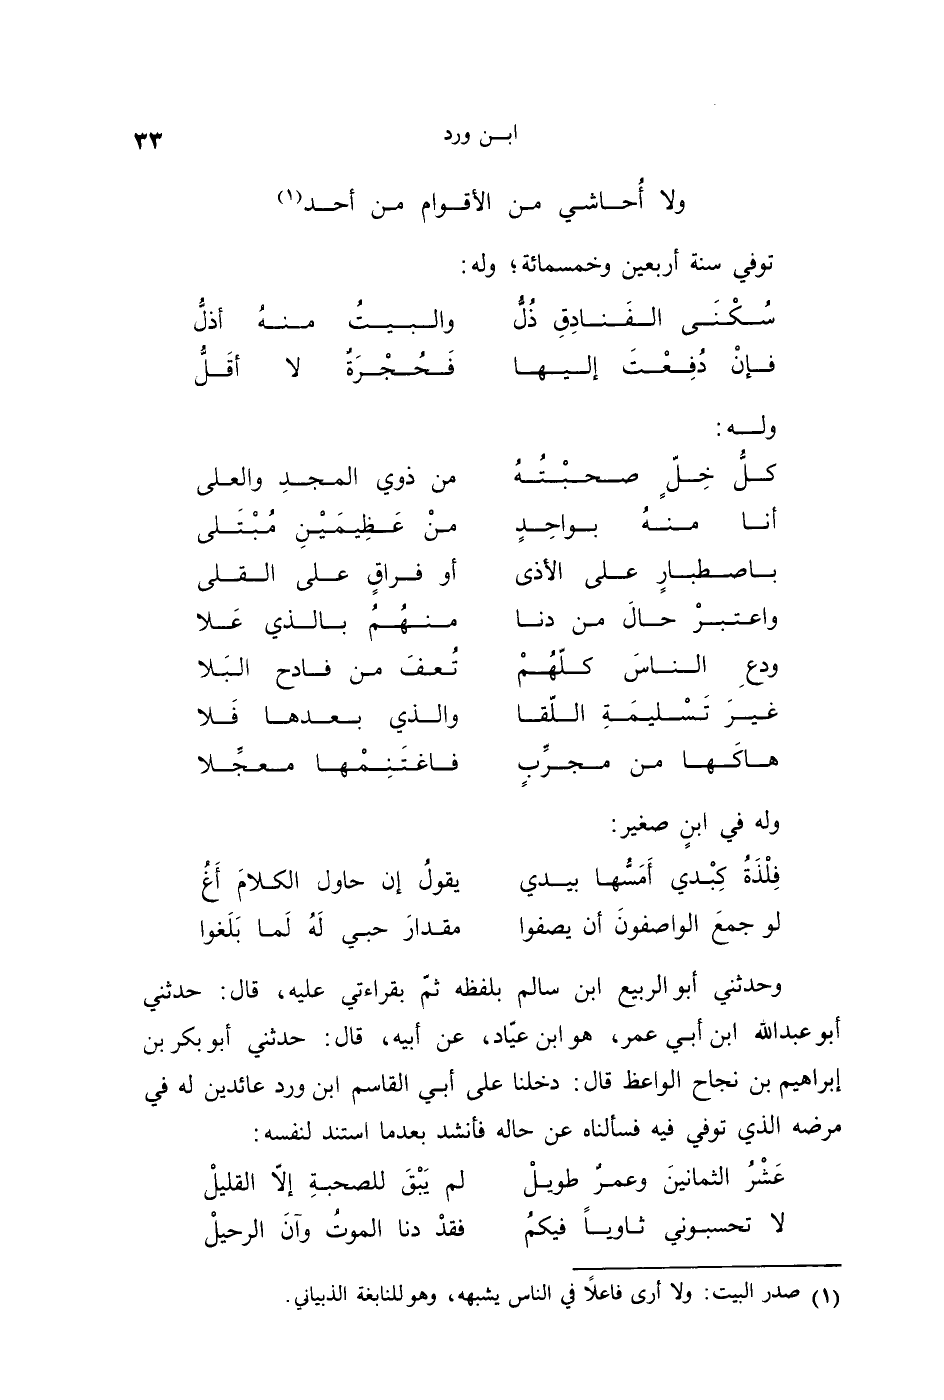 ابن ورد ٣٣
ولا أُحاشي من الأقوام من أحد(١)
توفي سنة أربعين وخمسمائة؛ وله:
سُكْنَى الفَنادِقِ ذُلُّ والبيتُ منهُ أذلُّ
فإنْ دُفِعْتَ إليها فَحُجْرَةٌ لا أقَلُّ
وله:
كلُّ خِلٍّ صحبْتُهُ من ذوي المجدِ والعلى
أنا منهُ بواحِدٍ منْ عَظِيمَيْنِ مُبْتَلى
باصطبارٍ على الأذى أو فراقٍ على القلى
واعتبرْ حالَ من دنا منهُمُ بالذي عَلا
ودعِ الناسَ كلّهُمْ تُعفَ من فادح البَلا
غيرَ تَسْليمَةِ اللّقا والذي بعدها فَلا
هاكَها من مجرِّبٍ فاغتَنِمْها معجَّلا
وله في ابنٍ صغير:
فِلْذَةُ كِبْدي أَمَسُّها بيدي يقولُ إن حاول الكلامَ أَغُ
لو جمعَ الواصفونَ أن يصفوا مقدارَ حبي لَهُ لَما بَلَغوا
وحدثني أبو الربيع ابن سالم بلفظه ثمّ بقراءتي عليه، قال: حدثني
أبو عبدالله ابن أبي عمر، هو ابن عيّاد، عن أبيه، قال: حدثني أبو بكر بن
إبراهيم بن نجاح الواعظ قال: دخلنا على أبي القاسم ابن ورد عائدين له في
مرضه الذي توفي فيه فسألناه عن حاله فأنشد بعدما استند لنفسه:
عَشْرُ الثمانينَ وعمرٌ طويلْ لم يَبْقَ للصحبةِ إلاّ القليلْ
لا تحسبوني ثاوياً فيكمُ فقدْ دنا الموتُ وآنَ الرحيلْ
(١) صدر البيت: ولا أرى فاعلاً في الناس يشبهه، وهو للنابغة الذبياني.